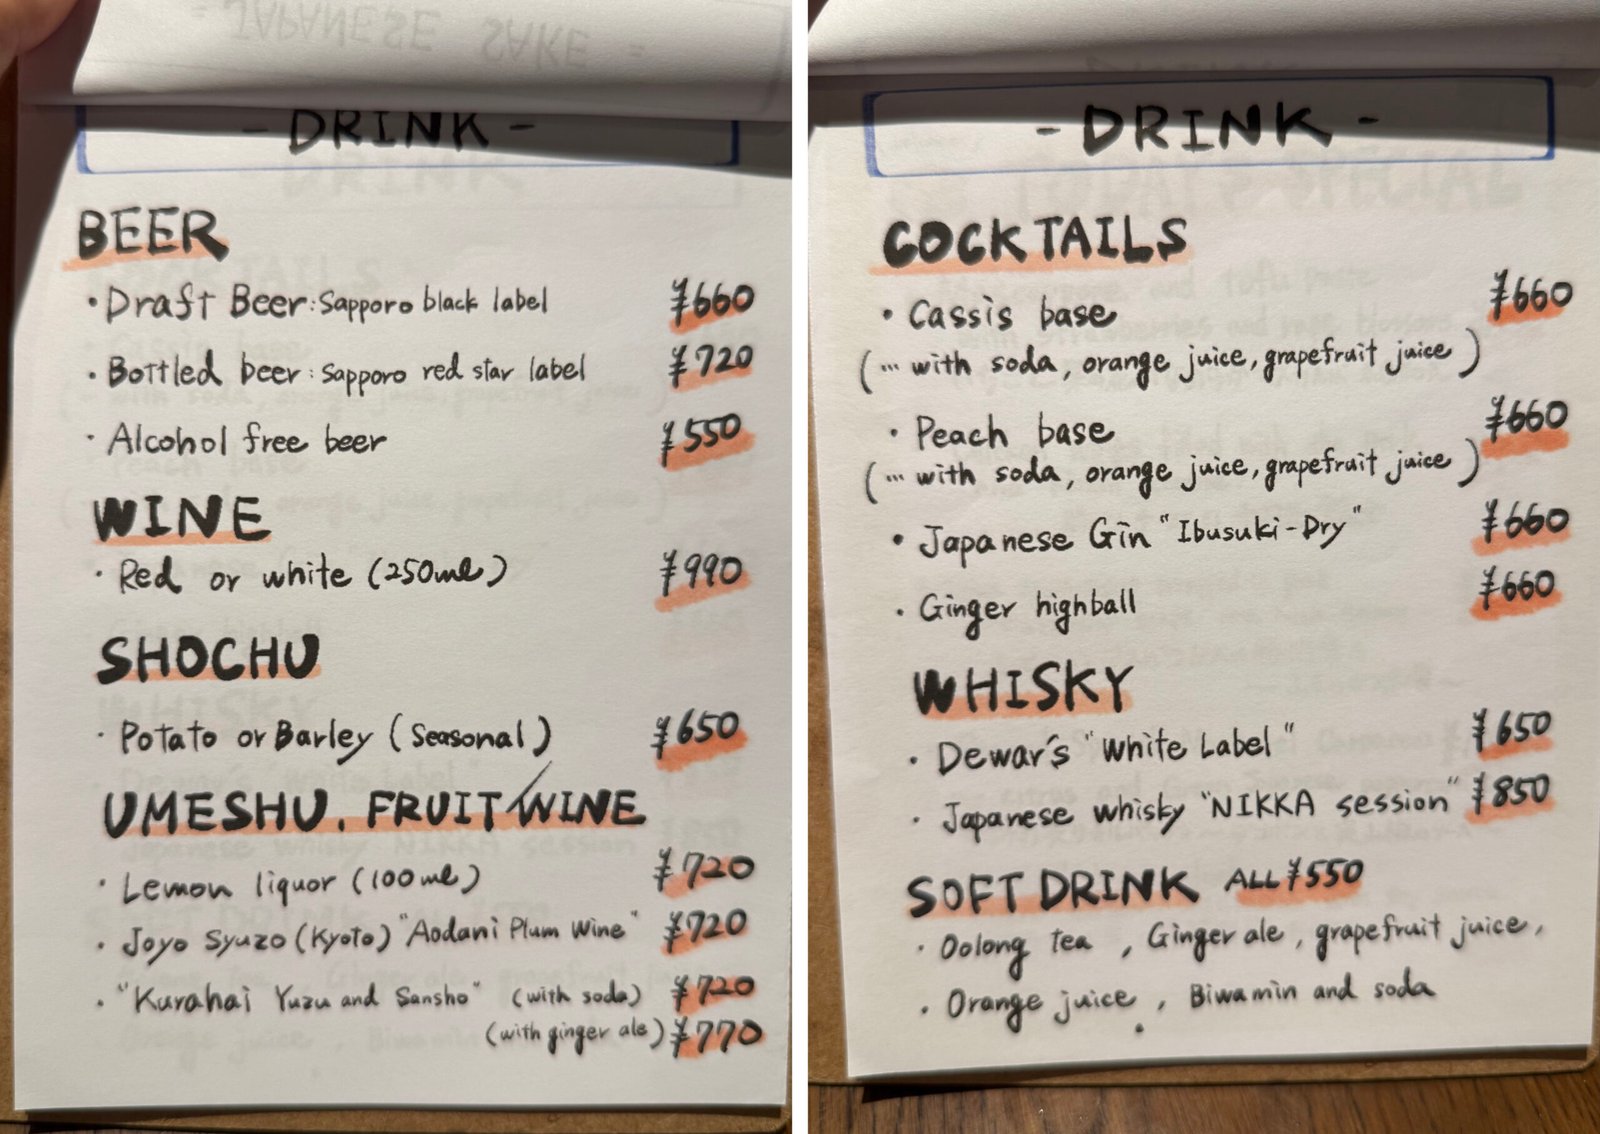 = JAPANESE SAKE =
- DRINK -
BEER
・Draft Beer:Sapporo black label ¥660
・Bottled beer:Sapporo red star label ¥720
・Alcohol free beer ¥550
WINE
・Red or white (250ml) ¥990
SHOCHU
・Potato or Barley (Seasonal) ¥650
UMESHU. FRUIT WINE
・Lemon liquor (100ml) ¥720
・Joyo Syuzo (Kyoto) "Aodani Plum Wine" ¥720
・"Kurahai Yuzu and Sansho" (with soda) ¥720
(with ginger ale) ¥770
- DRINK -
COCKTAILS
・Cassis base ¥660
(… with soda, orange juice, grapefruit juice)
・Peach base ¥660
(… with soda, orange juice, grapefruit juice)
・Japanese Gin "Ibusuki-Dry" ¥660
・Ginger highball ¥660
WHISKY
・Dewar's "White Label" ¥650
・Japanese whisky "NIKKA session" ¥850
SOFT DRINK ALL ¥550
・Oolong tea , Ginger ale , grapefruit juice ,
・Orange juice , Biwamin and soda